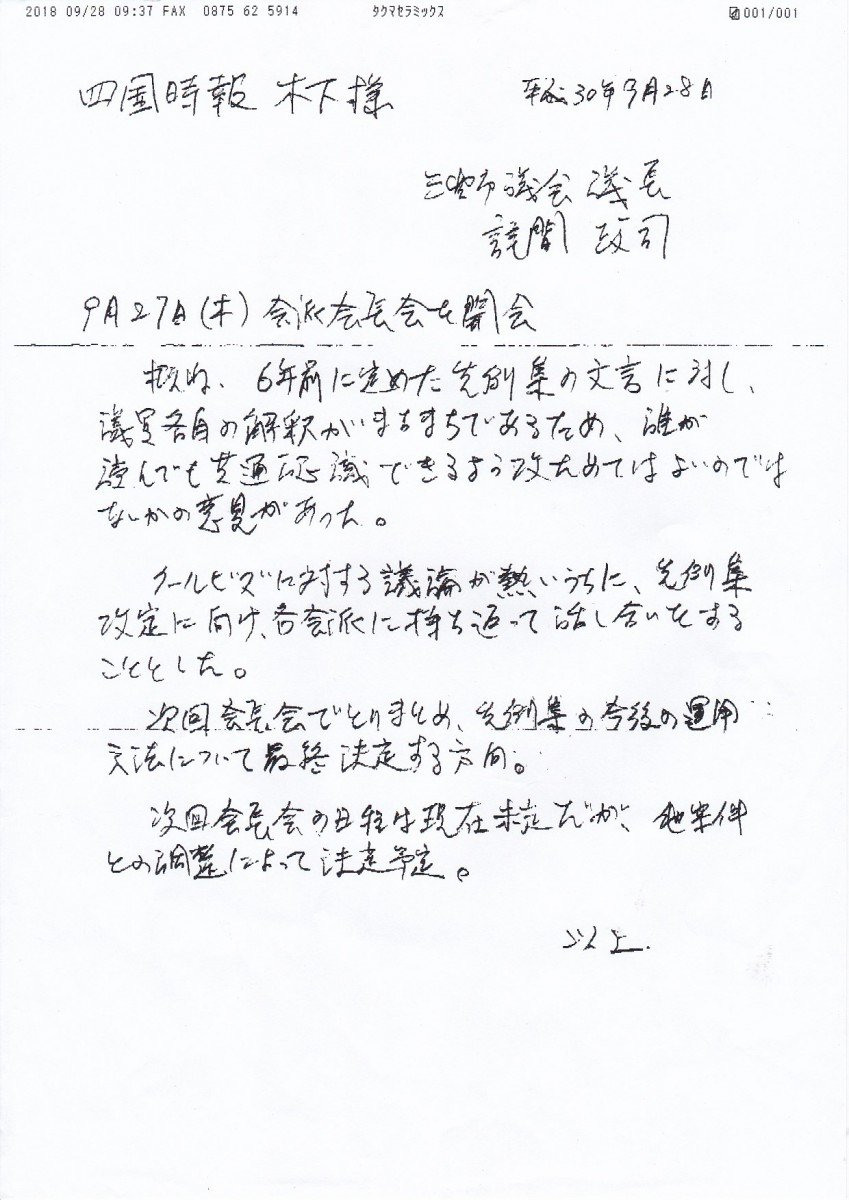 2018 09/28 09:37 FAX 0875 62 5914 タクマセラミックス 001/001
四国時報 木下様 平成30年9月28日
三豊市議会 議長
詫間 政司
9月27日(木) 会派会長会を開会
概ね、6年前に定めた先例集の文言に対し、
議員各自の解釈がいまちまちであるため、誰が
読んでも共通認識できるよう改ためてはよいのでは
ないかの意見があった。
クールビズに対する議論が熱いうちに、先例集
改定に向け、各会派に持ち返って話し合いをする
こととした。
次回会長会でとりまとめ、先例集の今後の運用
方法について最終決定する方向。
次回会長会の日程は現在未定だが、他案件
との調整によって決定予定。
以上.